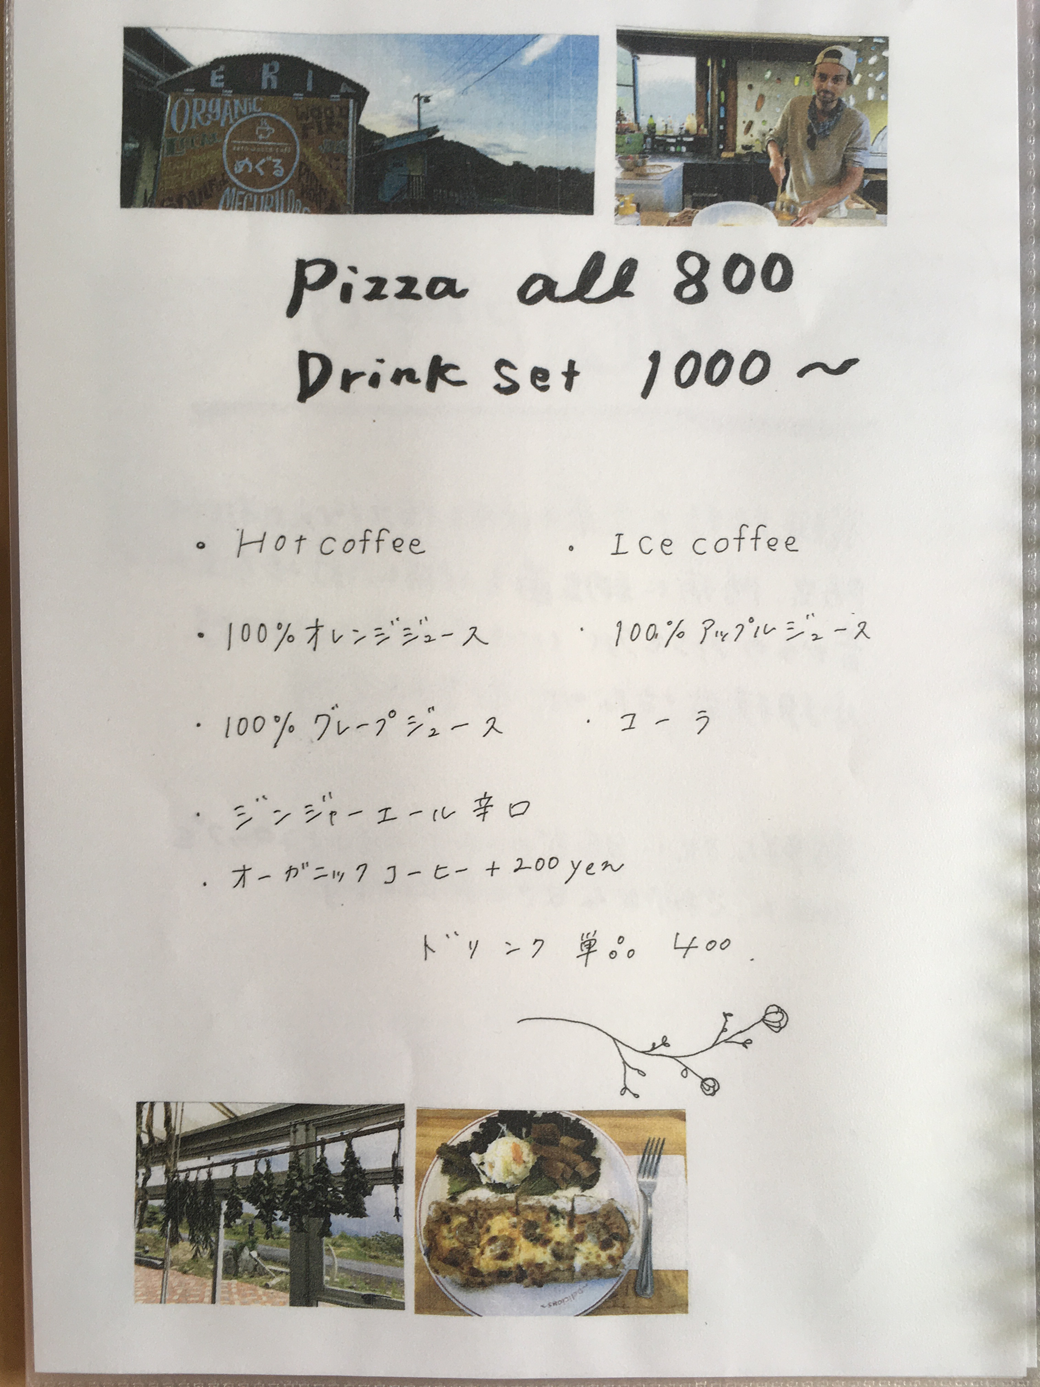 ERI
ORGANIC
WOOD
FIRE
めぐる
MEGURU
Pizza all 800
Drink set 1000～
・Hot coffee ・Ice coffee
・100%オレンジジュース ・100%アップルジュース
・100%グレープジュース ・コーラ
・ジンジャーエール辛口
・オーガニックコーヒー+200yen
ドリンク単品 400.